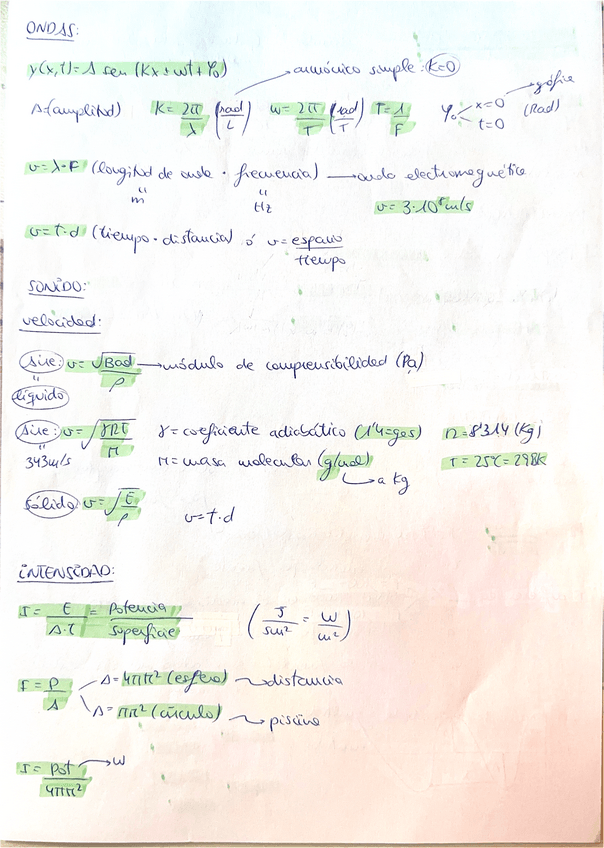 ONDAS:
y(x,t)= A sen (Kx ± ωt + φ₀)
armónico simple: K=0
A=(amplitud) K = 2π/λ (rad/L) ω = 2π/T (rad/T) T = 1/F φ₀ x=0 t=0 gráfica (Rad)
v = λ·F (longitud de onda · frecuencia) → onda electromagnética
" m " Hz v = 3·10⁸ m/s
v = t·d (tiempo · distancia) ó v = espacio/tiempo
SONIDO:
velocidad:
Aire: v = √Bad/ρ → módulo de comprensibilidad (Pa)
"
líquido
Aire: v = √γRT/M γ = coeficiente adiabático (1'4=gas) R = 8'314 (Kg)
343m/s M = masa molecular (g/mol) T = 25ºC = 298K
→ a kg
Sólido v = √E/ρ v = t·d
INTENSIDAD:
I = E/A·T = Potencia/superficie (J/s·m² = W/m²)
I = P/A A = 4πR² (esfera) → distancia
A = πR² (círculo) → piscina
I = Pot/4πR² → W